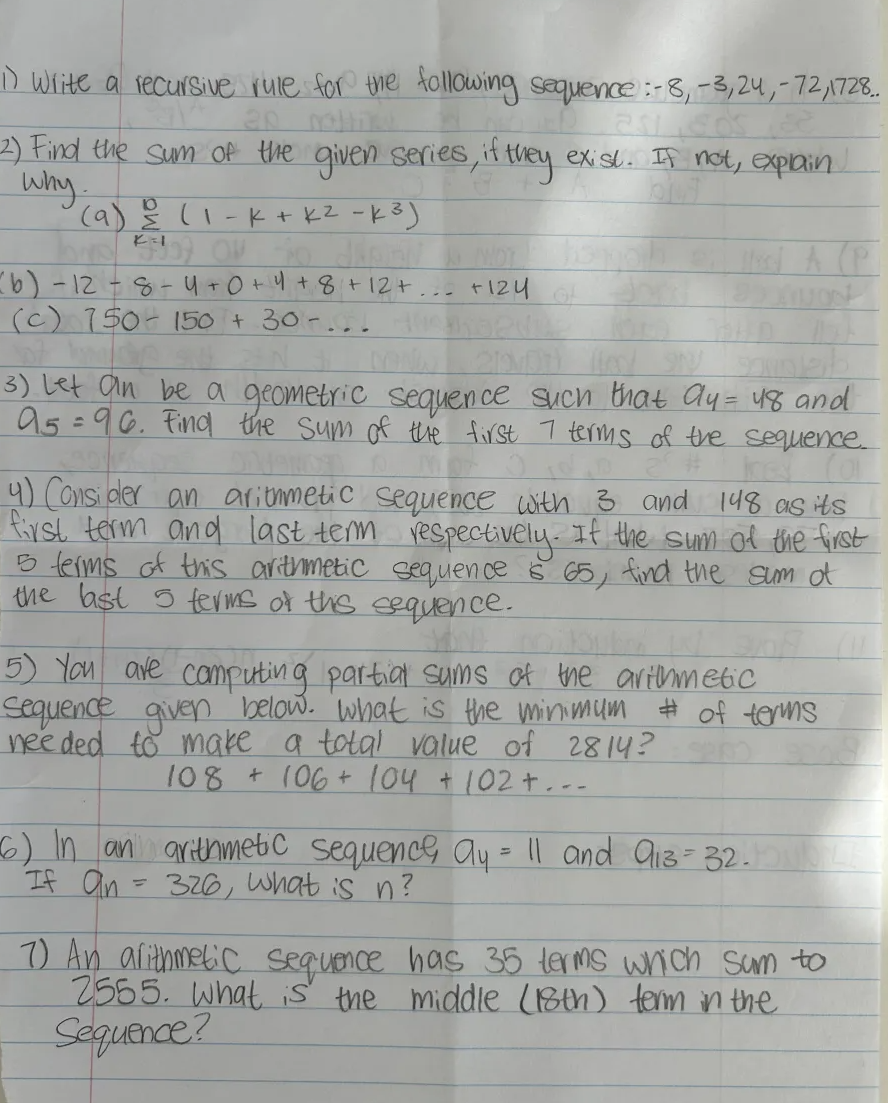 1) Write a recursive rule for the following sequence :- 8, -3, 24, -72, 1728..
2) Find the sum of the given series, if they exist. If not, explain
why.
(a) Σ (1 - k + k² - k³)
k=1
(b) -12 - 8 - 4 + 0 + 4 + 8 + 12 + ... + 124
(c) 750 - 150 + 30 - ...
3) Let an be a geometric sequence such that a4 = 48 and
a5 = 96. Find the sum of the first 7 terms of the sequence.
4) Consider an arithmetic sequence with 3 and 148 as its
first term and last term respectively. If the sum of the first
5 terms of this arithmetic sequence is 65, find the sum of
the last 5 terms of this sequence.
5) You are computing partial sums of the arithmetic
sequence given below. What is the minimum # of terms
needed to make a total value of 2814?
108 + 106 + 104 + 102 + ...
6) In an arithmetic sequence, a4 = 11 and a13 = 32.
If an = 326, what is n?
7) An arithmetic sequence has 35 terms which sum to
2555. What is the middle (18th) term in the
sequence?